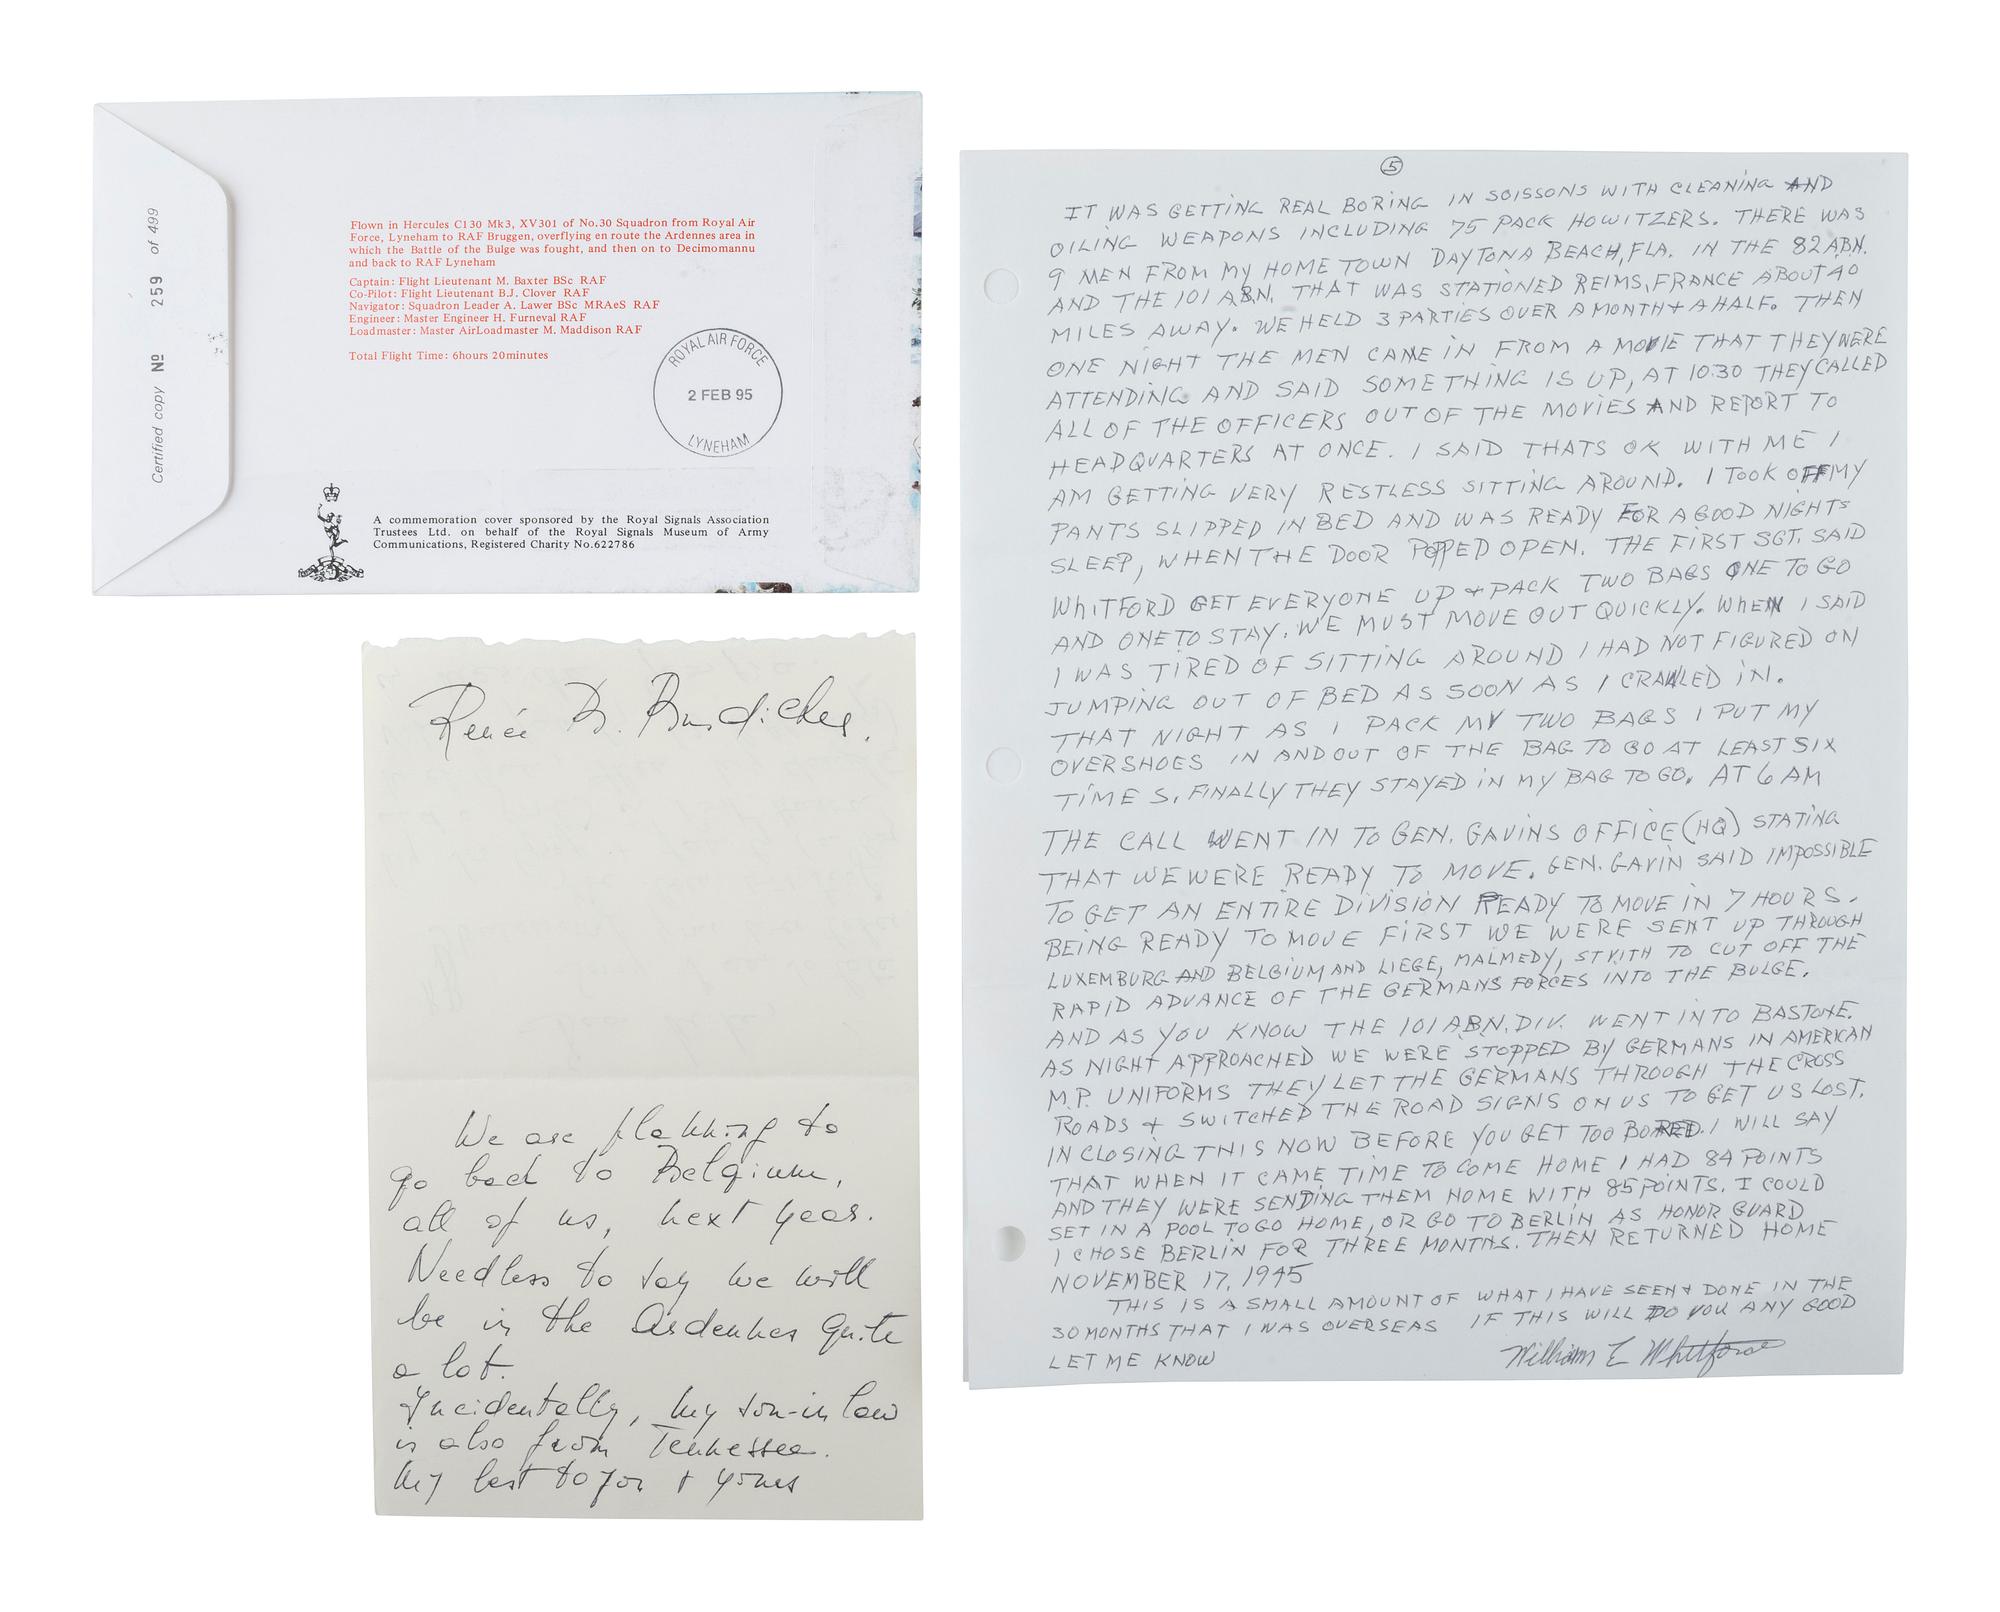 Certified copy No 259 of 499
Flown in Hercules C130 Mk3, XV301 of No.30 Squadron from Royal Air
Force, Lyneham to RAF Bruggen, overflying en route the Ardennes area in
which the Battle of the Bulge was fought, and then on to Decimomannu
and back to RAF Lyneham
Captain: Flight Lieutenant M. Baxter BSc RAF
Co-Pilot: Flight Lieutenant B.J. Clover RAF
Navigator: Squadron Leader A. Lawer BSc MRAeS RAF
Engineer: Master Engineer H. Furneval RAF
Loadmaster: Master AirLoadmaster M. Maddison RAF
Total Flight Time: 6hours 20minutes
ROYAL AIR FORCE
2 FEB 95
LYNEHAM
A commemoration cover sponsored by the Royal Signals Association
Trustees Ltd. on behalf of the Royal Signals Museum of Army
Communications, Registered Charity No.622786
Renée B.
We are planning to
go back to Belgium,
all of us, next year.
Needless to say we will
be in the Ardennes quite
a lot.
Incidentally, my son-in law
is also from Tennessee.
My best to you + yours
5
IT WAS GETTING REAL BORING IN SOISSONS WITH CLEANING AND
OILING WEAPONS INCLUDING 75 PACK HOWITZERS. THERE WAS
9 MEN FROM MY HOME TOWN DAYTONA BEACH, FLA. IN THE 82 ABN.
AND THE 101 ABN. THAT WAS STATIONED REIMS, FRANCE ABOUT 40
MILES AWAY. WE HELD 3 PARTIES OVER A MONTH + A HALF. THEN
ONE NIGHT THE MEN CAME IN FROM A MOVIE THAT THEY WERE
ATTENDING AND SAID SOMETHING IS UP, AT 10:30 THEY CALLED
ALL OF THE OFFICERS OUT OF THE MOVIES AND REPORT TO
HEADQUARTERS AT ONCE. I SAID THATS OK WITH ME I
AM GETTING VERY RESTLESS SITTING AROUND. I TOOK OFF MY
PANTS SLIPPED IN BED AND WAS READY FOR A GOOD NIGHTS
SLEEP, WHEN THE DOOR POPPED OPEN. THE FIRST SGT. SAID
WHITFORD GET EVERYONE UP + PACK TWO BAGS ONE TO GO
AND ONE TO STAY. WE MUST MOVE OUT QUICKLY. WHEN I SAID
I WAS TIRED OF SITTING AROUND I HAD NOT FIGURED ON
JUMPING OUT OF BED AS SOON AS I CRAWLED IN.
THAT NIGHT AS I PACK MY TWO BAGS I PUT MY
OVERSHOES IN AND OUT OF THE BAG TO GO AT LEAST SIX
TIMES. FINALLY THEY STAYED IN MY BAG TO GO. AT 6 AM
THE CALL WENT IN TO GEN. GAVINS OFFICE (HQ) STATING
THAT WE WERE READY TO MOVE. GEN. GAVIN SAID IMPOSSIBLE
TO GET AN ENTIRE DIVISION READY TO MOVE IN 7 HOURS.
BEING READY TO MOVE FIRST WE WERE SENT UP THROUGH
LUXEMBURG AND BELGIUM AND LIEGE, MALMEDY, ST VITH TO CUT OFF THE
RAPID ADVANCE OF THE GERMANS FORCES INTO THE BULGE.
AND AS YOU KNOW THE 101 ABN. DIV. WENT INTO BASTONE.
AS NIGHT APPROACHED WE WERE STOPPED BY GERMANS IN AMERICAN
M.P. UNIFORMS THEY LET THE GERMANS THROUGH THE CROSS
ROADS + SWITCHED THE ROAD SIGNS ON US TO GET US LOST.
IN CLOSING THIS NOW BEFORE YOU GET TOO BORED. I WILL SAY
THAT WHEN IT CAME TIME TO COME HOME I HAD 84 POINTS
AND THEY WERE SENDING THEM HOME WITH 85 POINTS. I COULD
SET IN A POOL TO GO HOME, OR GO TO BERLIN AS HONOR GUARD
I CHOSE BERLIN FOR THREE MONTHS. THEN RETURNED HOME
NOVEMBER 17, 1945
THIS IS A SMALL AMOUNT OF WHAT I HAVE SEEN + DONE IN THE
30 MONTHS THAT I WAS OVERSEAS IF THIS WILL DO YOU ANY GOOD
LET ME KNOW William E Whitford